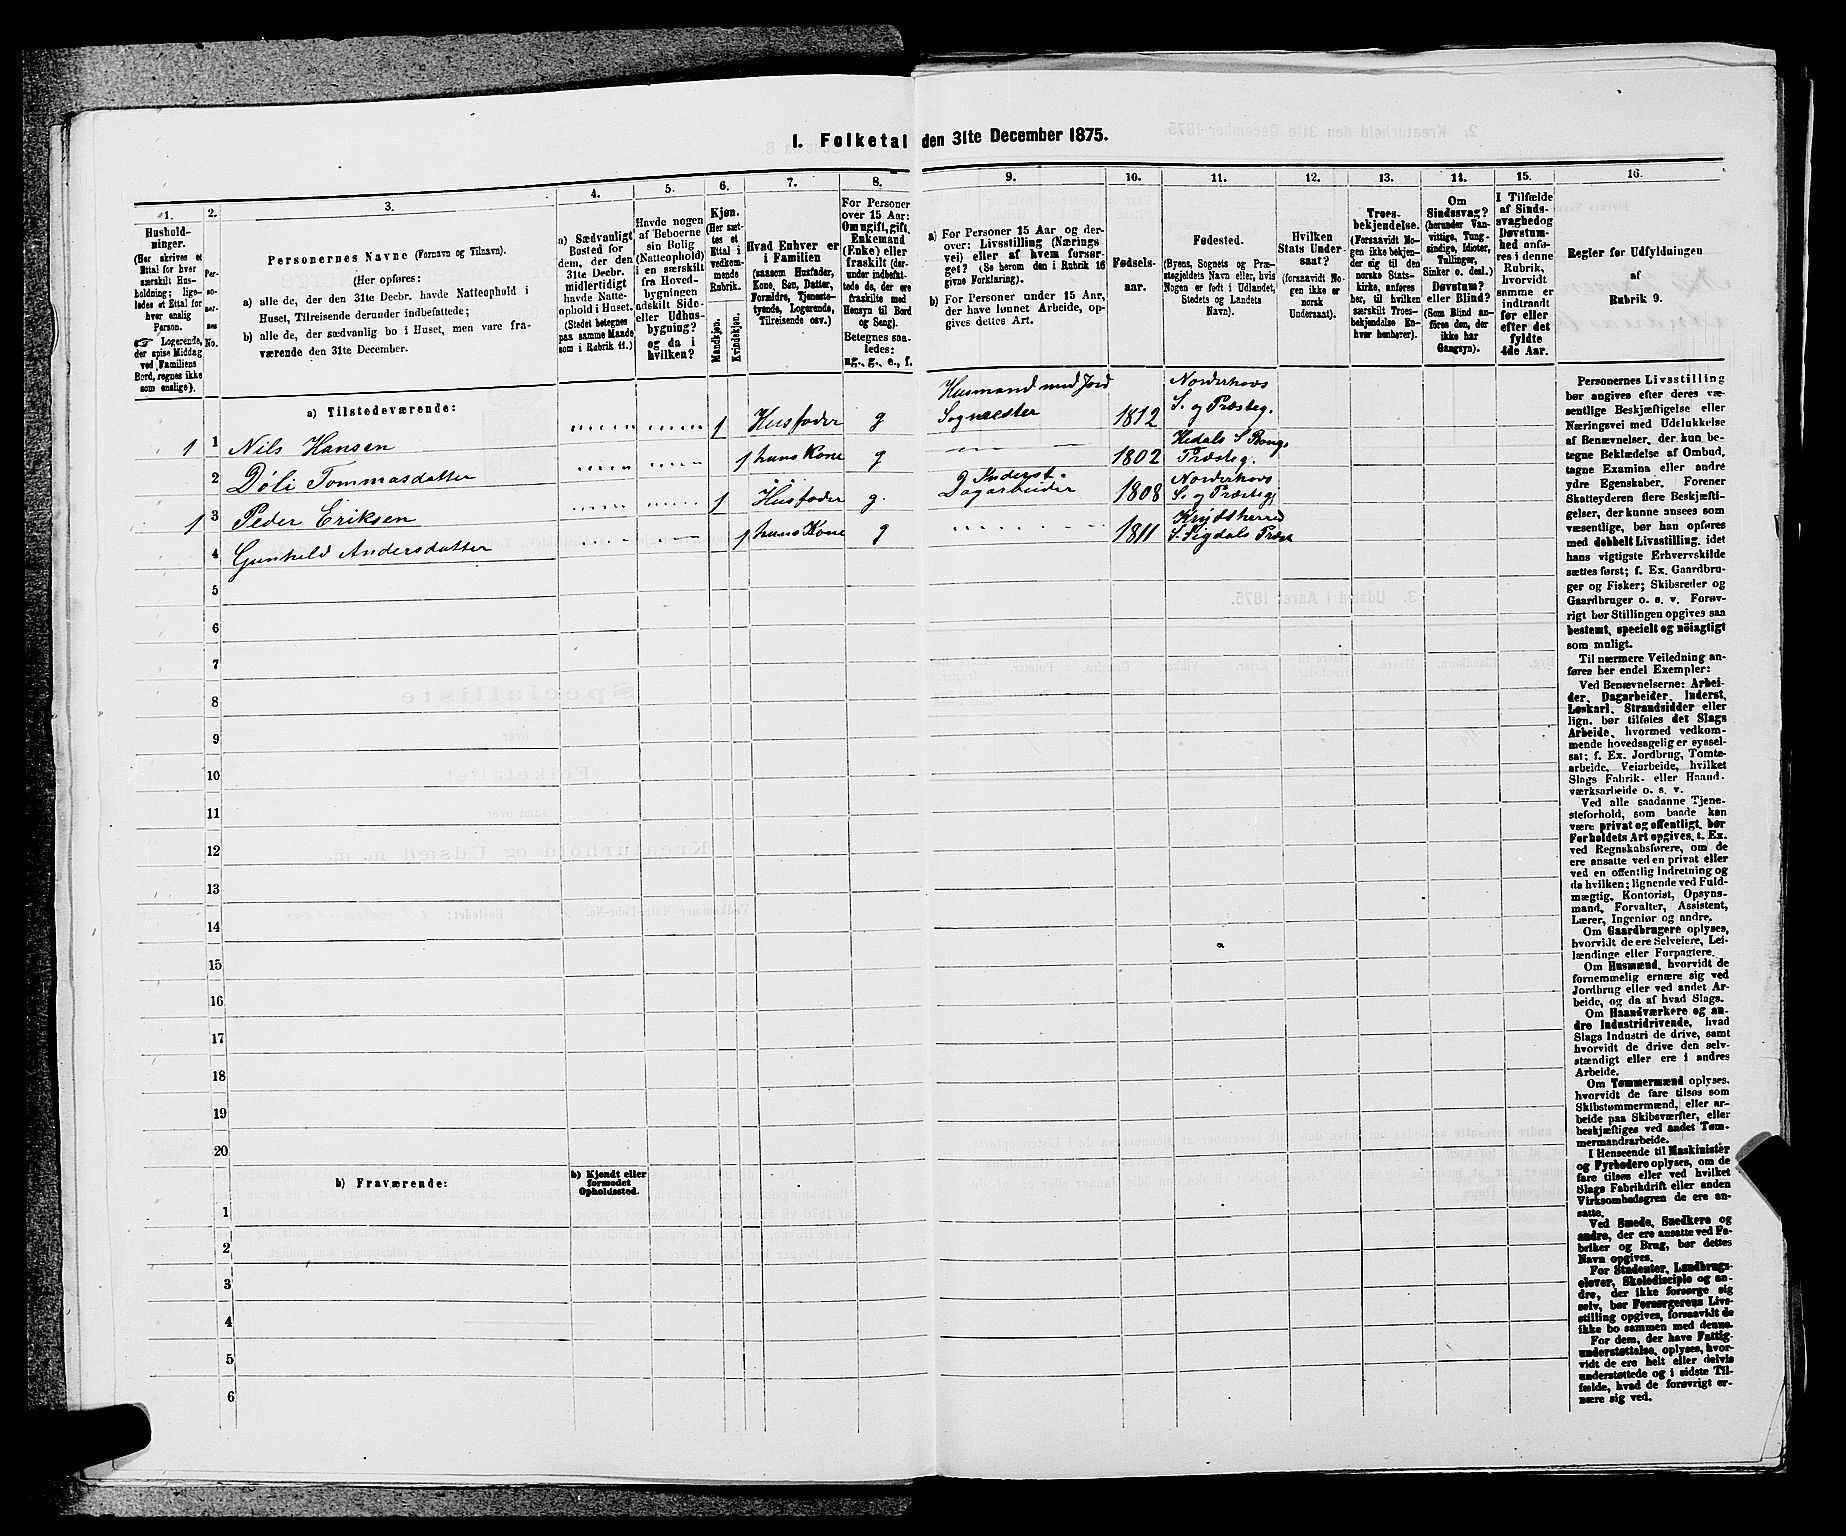 I. Folketal den 31te December 1875.
1.
2.
3.
4.
5.
6.
7.
8.
9.
10.
11.
12.
13.
14.
15.
16.
Hushold-
ninger.
(Her skrives et
Ettal for hver
særskilt Hus-
holdning; lige-
ledes et Ettal for
hver enslig
Person.
☞ Logerende,
der spise Middag
ved Familiens
Bord, regnes ikke
som enslige).
Per-
so-
ner-
nes
No.
Personernes Navne (Fornavn og Tilnavn).
(Her opføres:
a) alle de, der den 31te Decbr. havde Natteophold i
Huset, Tilreisende derunder indbefattede;
b) alle de, der sædvanlig bo i Huset, men vare fra-
værende den 31te December.
a) Sædvanligt
Bosted for
dem, der den
31te Decbr.
midlertidigt
havde Natte-
ophold i Huset.
(Stedet betegnes
paa samme Maade
som i Rubrik 11.)
Havde nogen
af Beboerne
sin Bolig
(Natteophold)
i en særskilt
fra Hoved-
bygningen
adskilt Side-
eller Udhus-
bygning?
og da i
hvilken?
Kjøn.
(Her sæt-
tes et
Ettal i
vedkom-
mende
Rubrik.
Mandkjøn.
Kvindekjøn.
Hvad Enhver er
i Familien
(saasom Husfader,
Kone, Søn, Datter,
Forældre, Tjeneste-
tyende, Logerende,
Tilreisende osv.)
For Personer
over 15 Aar:
Om ugift, gift,
Enkemand
(Enke) eller
fraskilt (der-
under indbefat-
tede de, der ere
fraskilte med
Hensyn til Bord
og Seng).
Betegnes saa-
ledes:
ug., g., e., f.
a) For Personer 15 Aar og der-
over: Livsstilling (Nærings
vei) eller af hvem forsør-
get? (Se herom den i Rubrik 16
givne Forklaring).
b) For Personer under 15 Aar,
der have lønnet Arbeide, op-
gives dettes Art.
Fødsels-
aar.
Fødested.
(Byens, Sognets og Præ-
stegjeldets Navn eller, hvis
Nogen er født i Udlandet,
Stedets og Landets
Navn).
Hvilken
Stats Under-
saat?
(forsaavidt No-
gen ikke er
norsk
Undersaat).
Troes-
bekjendelse.
(Forsaavidt No-
gen ikke bekjen-
der sig til den
norske Stats-
kirke, anføres
her, til hvilken
særskilt Troes-
bekjendelse En-
hver henhører).
Om
Sindssvag?
(herunder Van-
vittige, Tung-
sindige, Idioter,
Tullinger,
Sinker o. desl.)
Døvstum?
eller Blind?
(Som Blind an-
føres den, der
ikke har
Gangsyn).
I Tilfælde
af Sinds-
svaghedog
Døvstum-
hed anfø-
res i denne
Rubrik,
hvorvidt
samme er
indtraadt
før eller
efter det
fyldte
4de Aar.
Regler for Udfyldningen
af
Rubrik 9.
a) Tilstedeværende:
1 1 Nils Hansen 1 Husfader g Husmand med Jord
Sogneæster 1812 Norderhovs
S. og Præsteg.
2 Döli Tommasdatter 1 hans Kone g 1802 Hedals S
Præsteg.
1 3 Peder Eriksen 1 Husfader g. Inderst
Dagarbeider 1808 Norderhovs
S. og Præstegj
4 Gunhild Andersdatter 1 hans Kone g 1811 Krydsherred
S. Sigdals Præst
5
6
7
8
9
10
11
12
13
14
15
16
17
18
19
20
b) Fraværende:
b) Kjendt eller
formodet
Opholdssted.
1
2
3
4
5
6
Personernes Livsstilling
bør angives efter deres væ-
sentlige Beskjæftigelse eller
Næringsvei med Udelukkelse
af Benævnelser, der kun be-
tegne Beklædelse af Ombud,
tagne Examina eller andre
ydre Egenskaber. Forener
Skatteyderen flere Beskjæfti-
gelser, der kunne ansees som
væsentlige, bør han opføres
med dobbelt Livsstilling, idet
hans vigtigste Erhvervskilde
sættes først; f. Ex. Gaardbru-
ger og Fisker; Skibsreder og
Gaardbruger o. s. v. Forøv-
rigt bør Stillingen opgives saa
bestemt, specielt og nöiagtigt
som muligt.
Til nærmere Veiledning an-
føres her endel Exempler:
Ved Benævnelserne: Arbei-
der, Dagarbeider, Inderst,
Løskarl, Strandsidder eller
lign. bør tilføies det Slags
Arbeide, hvormed vedkom-
mende hovedsagelig er syssel-
sat; f. Ex. Jordbrug, Tomte-
arbeide, Veiarbeide, hvilket
Slags Fabrik- eller Haand-
værksarbeide o. s. v.
Ved alle saadanne Tjene-
steforhold, som baade kan
være privat og offentligt, bør
Forholdets Art opgives, t. Ex.
ved Regnskabsførere, om de
ere ansatte ved en privat eller
ved en offentlig Indretning og
da hvilken; lignende ved Fuld-
mægtig, Kontorist, Opsyns-
mand, Forvalter, Assistent,
Lærer, Ingeniør og andre.
Om Gaardbrugere oplyses,
hvorvidt de ere Selveiere, Lei-
lændinge eller Forpagtere.
Om Husmænd, hvorvidt de
fornemmelig ernære sig ved
Jordbrug eller ved andet Ar-
beide, og da af hvad Slags.
Om Haandværkere og an-
dre Industridrivende, hvad
Slags Industri de drive, samt
hvorvidt de drive den selv-
stændigt eller ere i andres
Arbeide.
Om Tømmermænd oplyses,
hvorvidt de fare tilsøs som
Skibstømmermænd, eller ar-
beide paa Skibsværfter, eller
beskjæftiges ved andet Tøm-
mermandsarbeide.
I Henseende til Maskinister
og Fyrbødere oplyses, om de
fare tilsøs eller ved hvilket
Slags Fabrikdrift eller anden
Virksomhedsgren de ere an-
satte.
Ved Smede, Snedkere og
andre, der ere ansatte ved Fa-
briker og Brug, bør dettes
Navn opgives.
For Studenter, Landbrugs-
elever, Skoledisciple og an-
dre, der ikke forsørge sig
selv, bør Forsørgerens Livs-
stilling opgives, forsaavidt de
ikke bo sammen med denne.
For dem, der have Fattig-
understøttelse, oplyses, hvor-
vidt de ere helt eller delvis
understøttede og i sidste Til-
fælde, hvad de forøvrigt er-
nære sig ved.